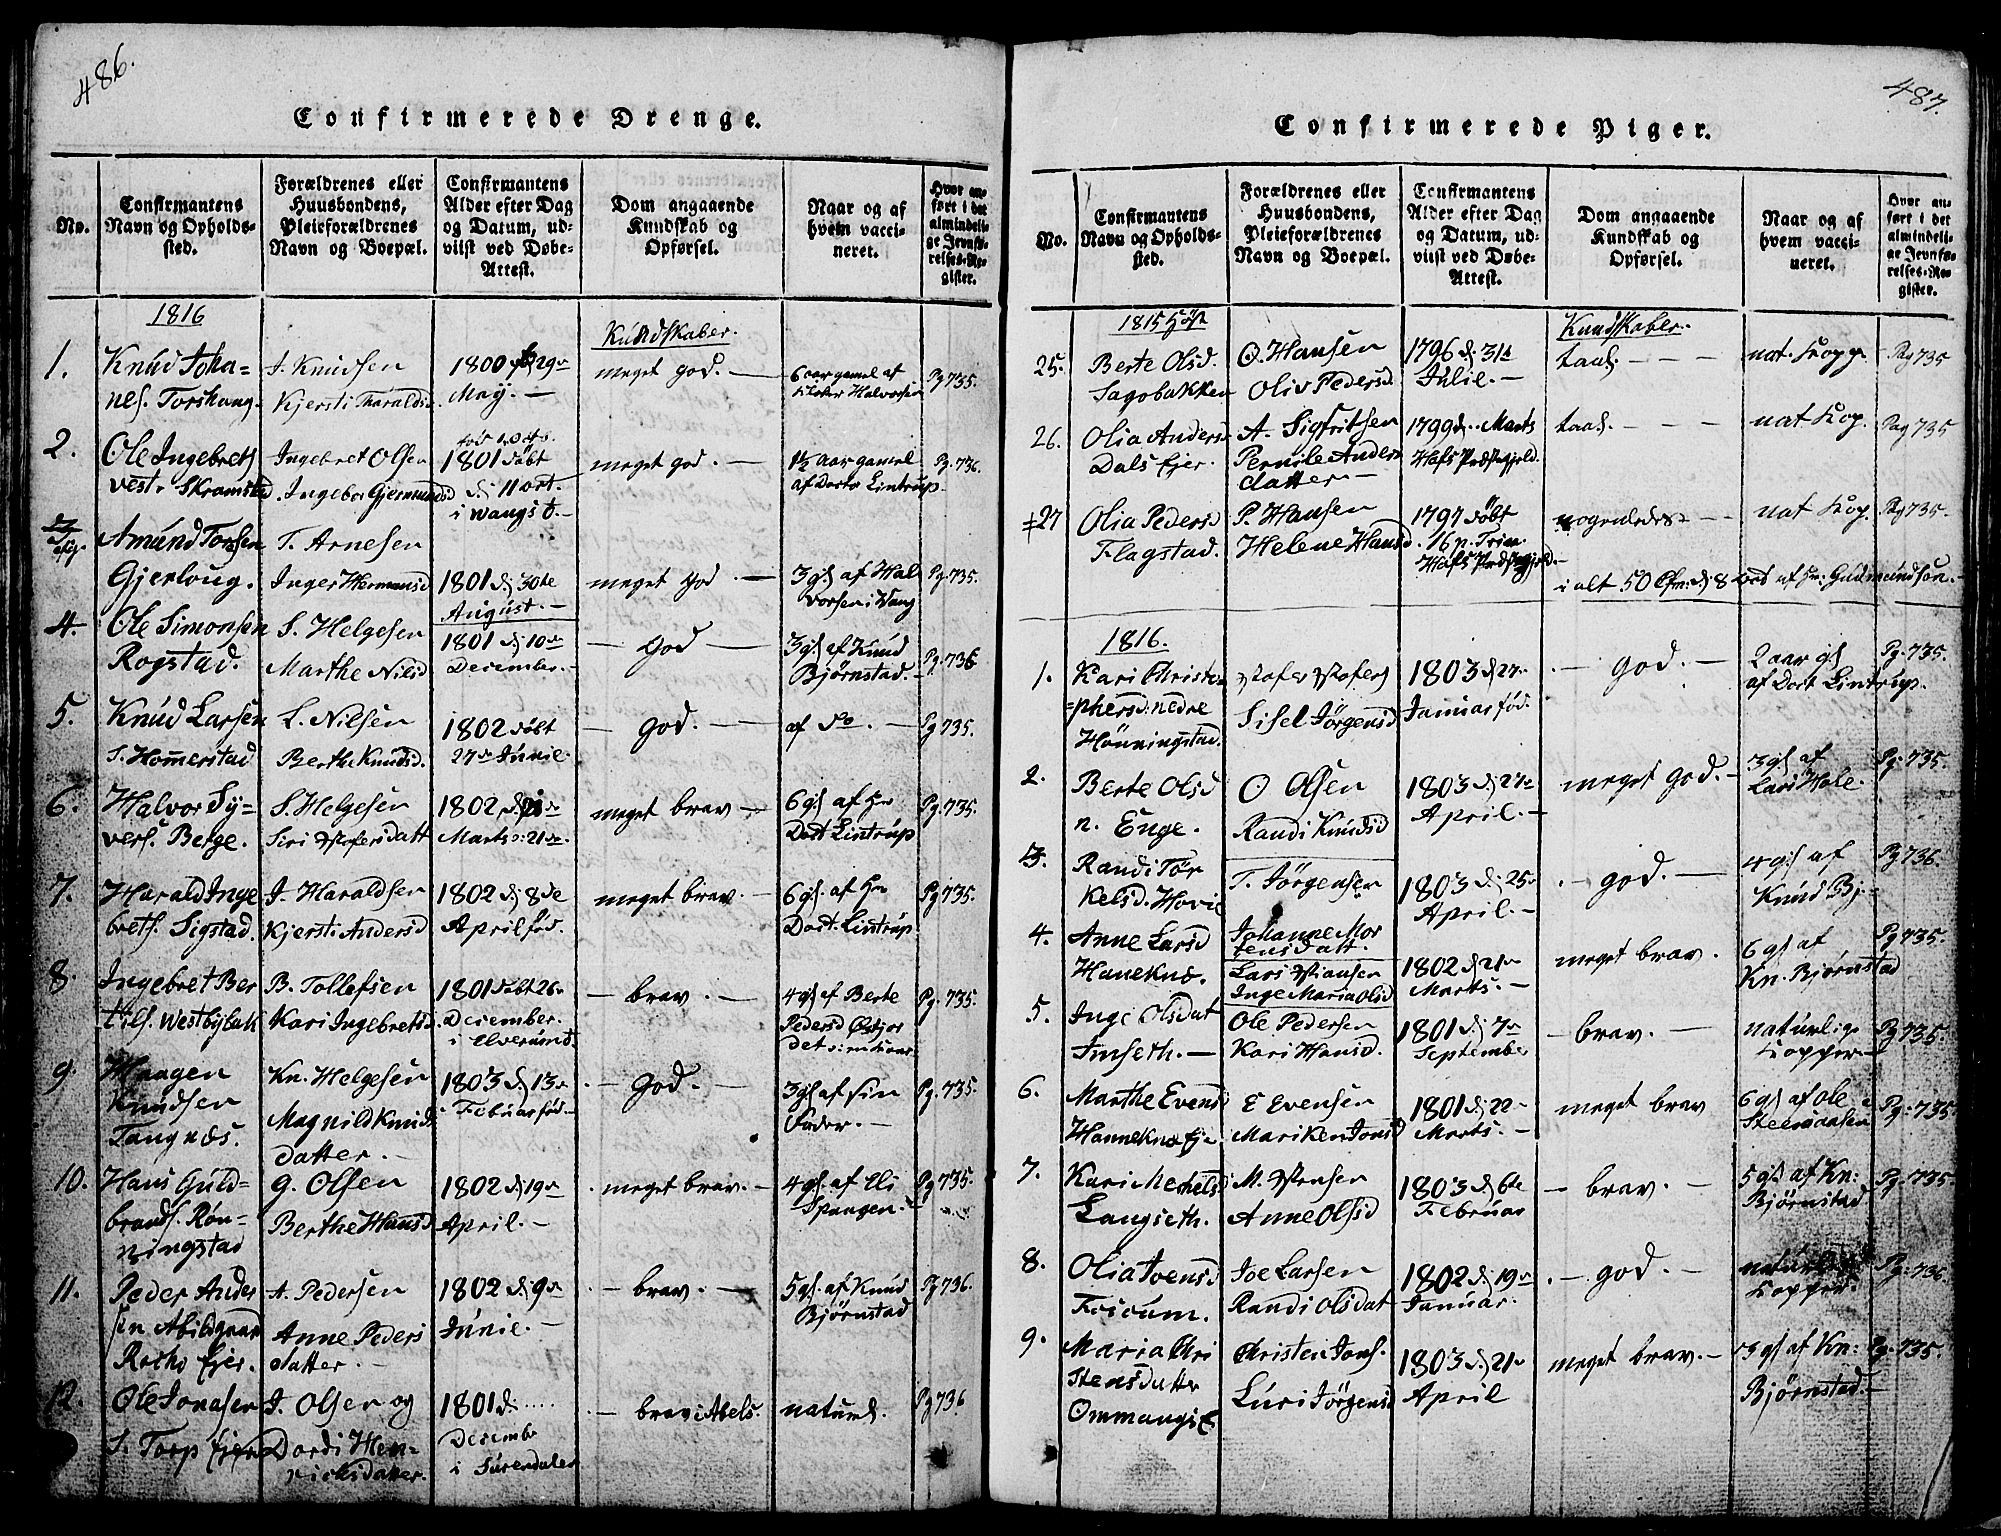 486.
Confirmerede Drenge.
No.
Confirmantens Navn og Opholdssted.
Forældrenes eller Huusbondens, Pleieforældrenes Navn og Boepæl.
Confirmantens Alder efter Dag og Datum, udviist ved Døbe-Attest.
Dom angaaende Kundskab og Opførsel.
Naar og af hvem vaccineret.
Hvor anført i det almindelige Jevnførelses-Register.
1816
Kundskaber.
1. Knud Joha- J. Knudsen 1800 29 meget god. — 6 aar gamel af Pg 735.
nes. Kjersti May. — Halvorsen
2. Ole Ingebrets Ingebret Olsen 1801 døbt meget god. — 1½ aar gamel Pg. 736.
vestr Skramstad Ingebor Gjermunds d. 11 oct. af Doctor Lintrup.
i Wangs
3 Amund Torsen T. Arnesen
Gjerloug. Inger Hermansd 1801 d. 30te meget god. — 3 gl af Hal Pg. 735.
August. — vorsen i Wang
4. Ole Simonsen S. Helgesen 1801 d. 10de — god — 3 gl af Knud Pg. 736
Rogstad. Marthe Nilsd December. — Bjørnstad. —
5. Knud Larsen L. Nilsen 1802 døbt — god. — af do. — Pg 735.
S. Hommerstad Berthe Knudsd. 27de Junie.
6. Halvor Sy- S. Helgesen 1802 meget brav — 6 gl af Hr Pg. 735.
vers. Berge. Siri datt Marts 21de. Doct Lintrup
7. Harald Inge J. Haraldsen 1802 d. 8de meget brav. — 6 gl. af Hr Pg 735.
brets. Sigstad. Kjersti Andersd April fød. Doct. Lintrup
8. Ingebret Ber B. Tollefsen 1801 døbt 26 — brav. — 4 gl af Berte Pg. 735.
tils. Westbybak Kari Ingebretsd. December. Pedersd
i Elverum
9. Haagen Kn. Helgesen 1803 d. 13 — god. — 3 gl af sin Pg. 735.
Knudsen Magnild Knuds Februar fød. — Fader. —
Tangnæs. datter. —
10. Hans Guld- G. Olsen 1802 d. 19 meget brav. — 4 gl. af Eli Pg 735.
brands. Røn- Berthe Hansd April. — Spangen.
ningstad
11. Peder Ander A. Pedersen 1802 d. 9 — brav. — 5 gl. af Knud Pg 736.
sen Abildgaar Anne Peders Junie. — Bjørnstad
ejer. datter. —
12. Ole Jonasen J. Olsen og 1801 d. .... — brav naturl. Pg 736
S. Torp ejer Dordi Hen- Decemb
ricksdatter. i Surendalen
487.
Confirmerede Piger.
No.
Confirmantens Navn og Opholdssted.
Forældrenes eller Huusbondens, Pleieforældrenes Navn og Boepæl.
Confirmantens Alder efter Dag og Datum, udviist ved Døbe-Attest.
Dom angaaende Kundskab og Opførsel.
Naar og af hvem vaccineret.
Hvor anført i det almindelige Jevnførelses-Register.
1815 Høst
Kundskaber.
25. Berte Olsd. O. Hansen 1796 d. 31 taal. — nat. Kopp Pag 735
Sagobakken Oliv Pedersd Julie. —
26. Olia Anders A. Sigfritsen 1799 d. Marts taal. — nat Kop. Pag 735
Dals Ejer. Pernile Anders
datter —
27 Olia Pedersd P. Hansen 1797 døbt nogenledes — nat Kop. Pg 735.
Flagstad. Helene Hansd 16 p. Trin.
i alt 50
1816.
1. Kari Christo 1803 d. 27 — god. — 2 aar gl Pg. 735.
=phersd: nedre Sisel Jørgensd Januar fød. af Doct Lintrup.
Hønningstad.
2. Berte Olsd O Olsen 1803 d. 27 meget god. — 3 gl af Pg. 735.
n. Enge. Randi Knudsd April. — Lars Hole
3. Randi Tør T. Jørgensen 1803 d. 25 — god. — 4 gl af Pg 736.
kelsd. Hovie April. — Knud Bj. —
4. Anne Larsd Johanne Mor
tensdatt. 1802 d. 21 meget brav. 6 gl af Pg 735.
Haneknæ. Lars Marts. — Kn. Bjørnstad
Inge Maria Olsd
5. Inge Olsdat Ole Pedersen 1801 d. 7 — brav. — naturlige Pg 735.
Imseth. — Kari Hansd. September Kopper —
6. Marthe Evens E Evensen 1801 d. 22 meget brav 6 gl af Ole Pg: 735.
Hanneknæ Ej. Mariken Jonsd Marts. — Steensaasen
7. Kari M. 1803 d. 6te — brav. — 5 gl af Kn: Pg. 735
Langseth. Anne Olsd Februar Bjørnstad
8. Olia Joensd Joe Larsen 1802 d. 19 — god. — naturl Pg. 736
Foscum. Randi Olsdat Januar. Kopper.
9. Maria Chri Christen Jons. 1803 d. 21 meget brav. — 3 gl af Kn: Pg. 735.
stensdatter Luri Jørgensd April Bjørnstad. —
Ommangs E